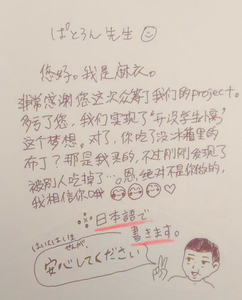 ぱとろん 先生
您好。我是麻衣。
非常感谢您这次众筹了我们的project。
多亏了您，我们实现了“开设学生寓”
这个梦想。对了，你吃了没冰箱里的
布丁？那是我买的，不过刚刚发现了
被别人吃掉了…。恩，绝对不是你做的，
我相信你
日本語で
書きます。
安心してください